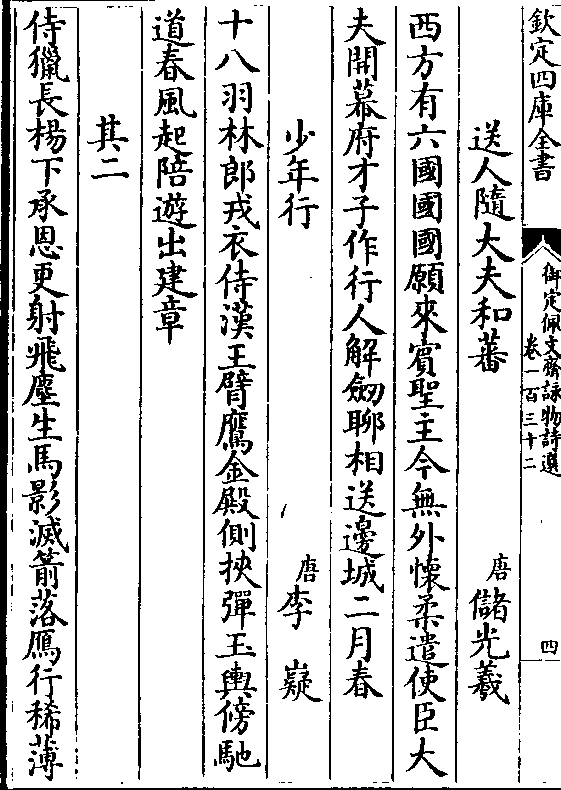 欽定四庫全書
御定佩文齋詠物詩選
卷一百三十二
四
送人隨大夫和蕃
唐儲光羲
西方有六國國國願來賓聖主今無外懷柔遣使臣大
夫開幕府才子作行人解劒聊相送邊城二月春
少年行
唐李嶷
十八羽林郎戎衣侍漢王臂鷹金殿側挾彈玉輿傍馳
道春風起陪遊出建章
其二
侍獵長楊下承恩更射飛塵生馬影滅箭落鴈行稀薄